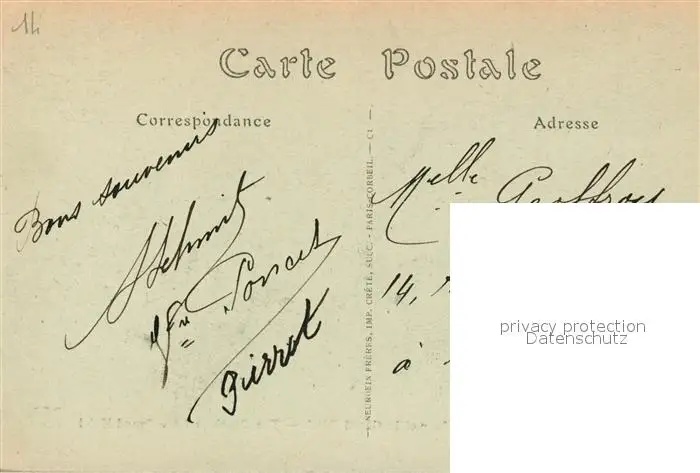 14
Carte Postale
Correspondance
Adresse
Bons souvenirs
ASchmit
Poncet
Pierrot
NEURDEIN FRÈRES, IMP. CRÉTÉ, SUCC. - PARIS-CORBEIL. — CI
Melle Geoffroy
14,
à
privacy protection
Datenschutz